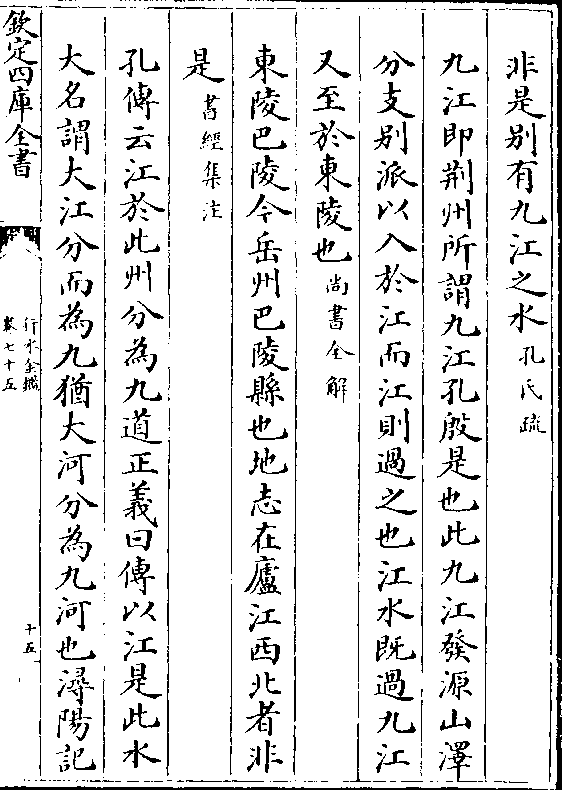 非是别有九江之水孔氏疏
九江即荆州所謂九江孔殷是也此九江發源山澤
分支别派以入於江而江則過之也江水既過九江
又至於東陵也尚書全解
東陵巴陵今岳州巴陵縣也地志在廬江西北者非
是書經集注
孔傳云江於此州分為九道正義曰傳以江是此水
大名謂大江分而為九猶大河分為九河也潯陽記
欽定四庫全書
行水金鑑
卷七十五
十五